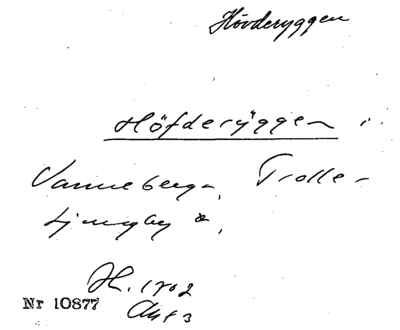 Hövderyggen
Höfderÿggen i
Vanneberga, Trolle-
Ljungby s,
H. 1702
Akt 3
Nr 10877